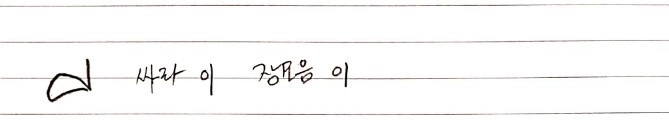 ี 싸라 이 장모음 이